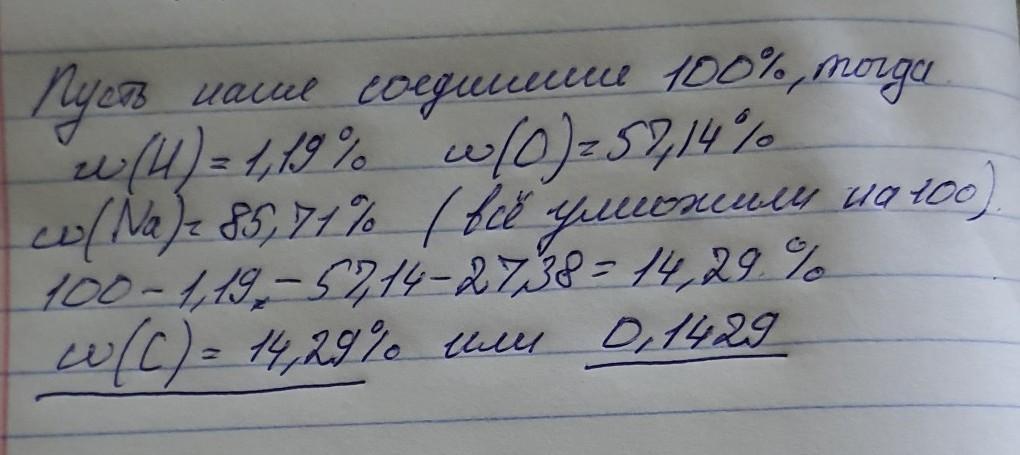 Пусть наше соединение 100%, тогда
w(H) = 1,19% w(O) = 57,14%
w(Na) = 85,71% (всё умножили на 100).
100 - 1,19 - 57,14 - 27,38 = 14,29 %
w(C) = 14,29% или 0,1429